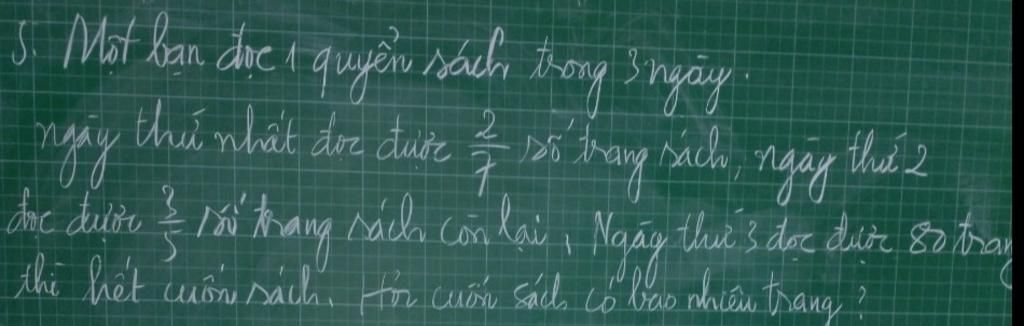 5. Một bạn đọc 1 quyển sách trong 3 ngày.
ngày thứ nhất đọc được 2/7 số trang sách, ngày thứ 2
đọc được 3/5 số trang sách còn lại, Ngày thứ 3 đọc được 80 trang
thì hết cuốn sách. Hỏi cuốn sách có bao nhiêu trang?